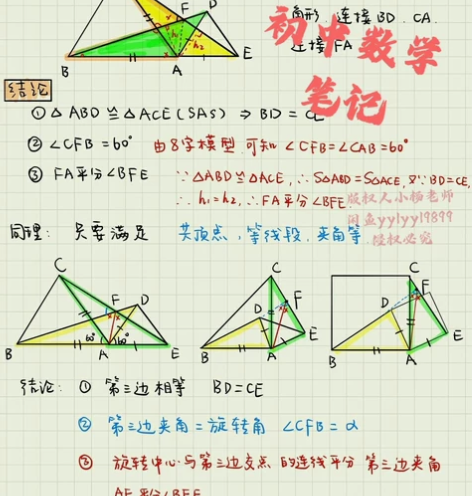 F D
角形 连接BD.CA.
连接FA
h₂
B A E
初中数学
笔记
结论
① △ABD ≌ △ACE (SAS) ⇒ BD = CE
② ∠CFB = 60° 由8字模型可知 ∠CFB=∠CAB=60°
③ FA平分∠BFE ∵△ABD≌△ACE, ∴S△ABD=S△ACE, 又∵BD=CE,
∴h₁=h₂, ∴FA平分∠BFE
版权人小杨老师
闲鱼yylyy19899
侵权必究
同理: 只要满足 共顶点, 等线段, 夹角等
C F D 60° 60° B A E
C D F B A E
C D F B A E
结论: ① 第三边相等 BD=CE
② 第三边夹角=旋转角 ∠CFB=α
③ 旋转中心与第三边交点的连线平分第三边夹角
AF平分∠BFE